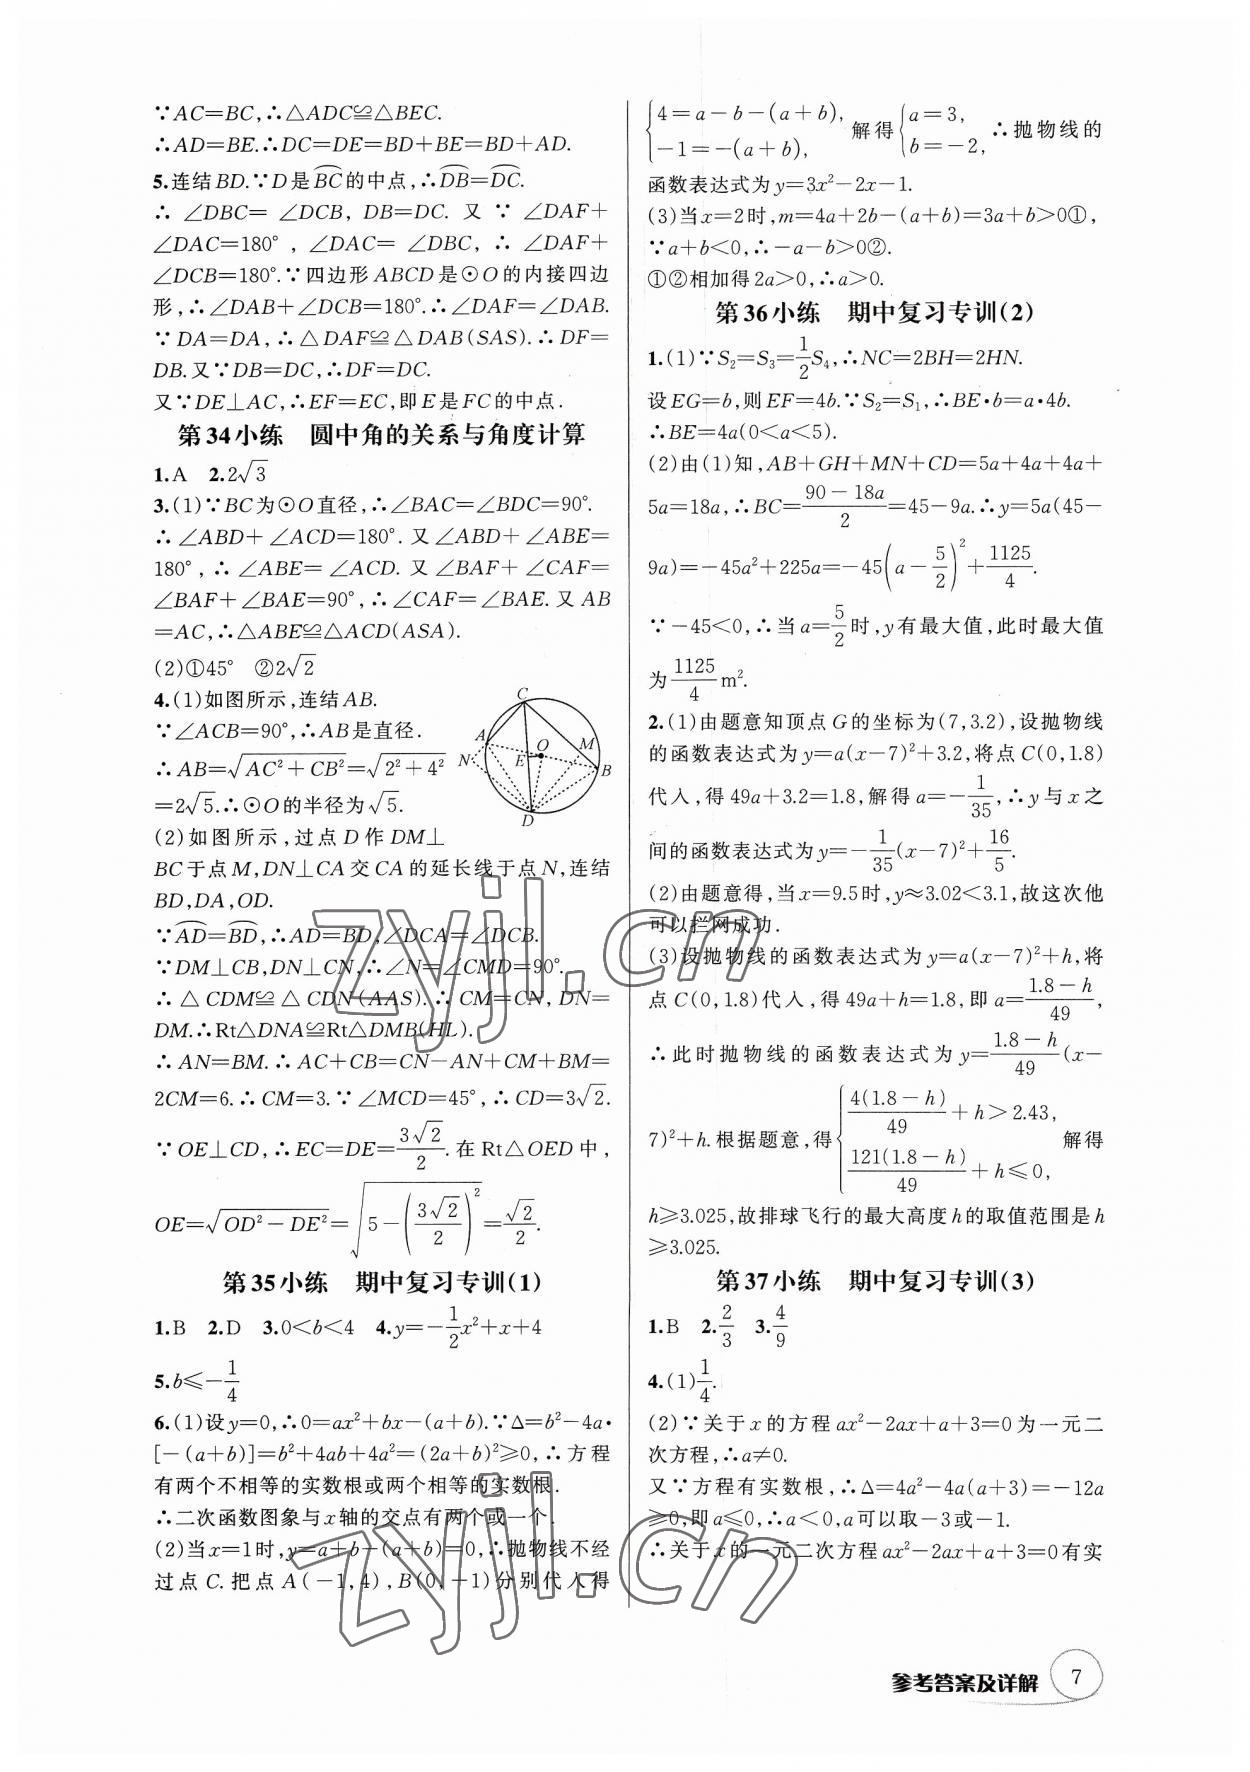 ∵AC=BC,∴△ADC≌△BEC.
∴AD=BE.∴DC=DE=BD+BE=BD+AD.
5.连结BD.∵D是B͡C的中点,∴D͡B=D͡C.
∴ ∠DBC= ∠DCB, DB=DC. 又 ∵ ∠DAF+
∠DAC=180°, ∠DAC= ∠DBC, ∴ ∠DAF+
∠DCB=180°.∵四边形ABCD是⊙O的内接四边
形,∴∠DAB+∠DCB=180°.∴∠DAF=∠DAB.
∵DA=DA,∴△DAF≌△DAB(SAS).∴DF=
DB.又∵DB=DC,∴DF=DC.
又∵DE⊥AC,∴EF=EC,即E是FC的中点.
第34小练 圆中角的关系与角度计算
1.A 2.2√3
3.(1)∵BC为⊙O直径,∴∠BAC=∠BDC=90°.
∴∠ABD+∠ACD=180°.又∠ABD+∠ABE=
180°,∴∠ABE=∠ACD.又∠BAF+∠CAF=
∠BAF+∠BAE=90°,∴∠CAF=∠BAE.又AB
=AC,∴△ABE≌△ACD(ASA).
(2)①45° ②2√2
4.(1)如图所示,连结AB.
∵∠ACB=90°,∴AB是直径.
∴AB=√(AC²+CB²)=√(2²+4²)
=2√5.∴⊙O的半径为√5.
(2)如图所示,过点D作DM⊥
C
A
O
M
N
E
B
D
BC于点M,DN⊥CA交CA的延长线于点N,连结
BD,DA,OD.
∵A͡D=B͡D,∴AD=BD,∠DCA=∠DCB.
∵DM⊥CB,DN⊥CN,∴∠N=∠CMD=90°.
∴△CDM≌△CDN(AAS).∴CM=CN,DN=
DM.∴Rt△DNA≌Rt△DMB(HL).
∴AN=BM.∴AC+CB=CN-AN+CM+BM=
2CM=6.∴CM=3.∵∠MCD=45°,∴CD=3√2.
∵OE⊥CD,∴EC=DE=3√2/2.在Rt△OED中,
OE=√(OD²-DE²)=√(5-(3√2/2)²)=√2/2.
第35小练 期中复习专训(1)
1.B 2.D 3.0<b<4 4.y=-1/2x²+x+4
5.b≤-1/4
6.(1)设y=0,∴0=ax²+bx-(a+b).∵Δ=b²-4a·
[-(a+b)]=b²+4ab+4a²=(2a+b)²≥0,∴方程
有两个不相等的实数根或两个相等的实数根.
∴二次函数图象与x轴的交点有两个或一个.
(2)当x=1时,y=a+b-(a+b)=0,∴抛物线不经
过点C.把点A(-1,4),B(0,-1)分别代入得
{4=a-b-(a+b), -1=-(a+b), 解得{a=3, b=-2, ∴抛物线的
函数表达式为y=3x²-2x-1.
(3)当x=2时,m=4a+2b-(a+b)=3a+b>0①,
∵a+b<0,∴-a-b>0②.
①②相加得2a>0,∴a>0.
第36小练 期中复习专训(2)
1.(1)∵S₂=S₃=1/2S₄,∴NC=2BH=2HN.
设EG=b,则EF=4b.∵S₂=S₁,∴BE·b=a·4b.
∴BE=4a(0<a<5).
(2)由(1)知,AB+GH+MN+CD=5a+4a+4a+
5a=18a,∴BC=(90-18a)/2=45-9a.∴y=5a(45-
9a)=-45a²+225a=-45(a-5/2)²+1125/4.
∵-45<0,∴当a=5/2时,y有最大值,此时最大值
为1125/4 m².
2.(1)由题意知顶点G的坐标为(7,3.2),设抛物线
的函数表达式为y=a(x-7)²+3.2,将点C(0,1.8)
代入,得49a+3.2=1.8,解得a=-1/35,∴y与x之
间的函数表达式为y=-1/35(x-7)²+16/5.
(2)由题意得,当x=9.5时,y≈3.02<3.1,故这次他
可以拦网成功.
(3)设抛物线的函数表达式为y=a(x-7)²+h,将
点C(0,1.8)代入,得49a+h=1.8,即a=(1.8-h)/49,
∴此时抛物线的函数表达式为y=(1.8-h)/49(x-
7)²+h.根据题意,得{4(1.8-h)/49+h>2.43, 121(1.8-h)/49+h≤0, 解得
h≥3.025,故排球飞行的最大高度h的取值范围是h
≥3.025.
第37小练 期中复习专训(3)
1.B 2.2/3 3.4/9
4.(1)1/4.
(2)∵关于x的方程ax²-2ax+a+3=0为一元二
次方程,∴a≠0.
又∵方程有实数根,∴Δ=4a²-4a(a+3)=-12a
≥0,即a≤0,∴a<0,a可以取-3或-1.
∴关于x的一元二次方程ax²-2ax+a+3=0有实
参考答案及详解 7
zyjl.cn
zyjl.cn